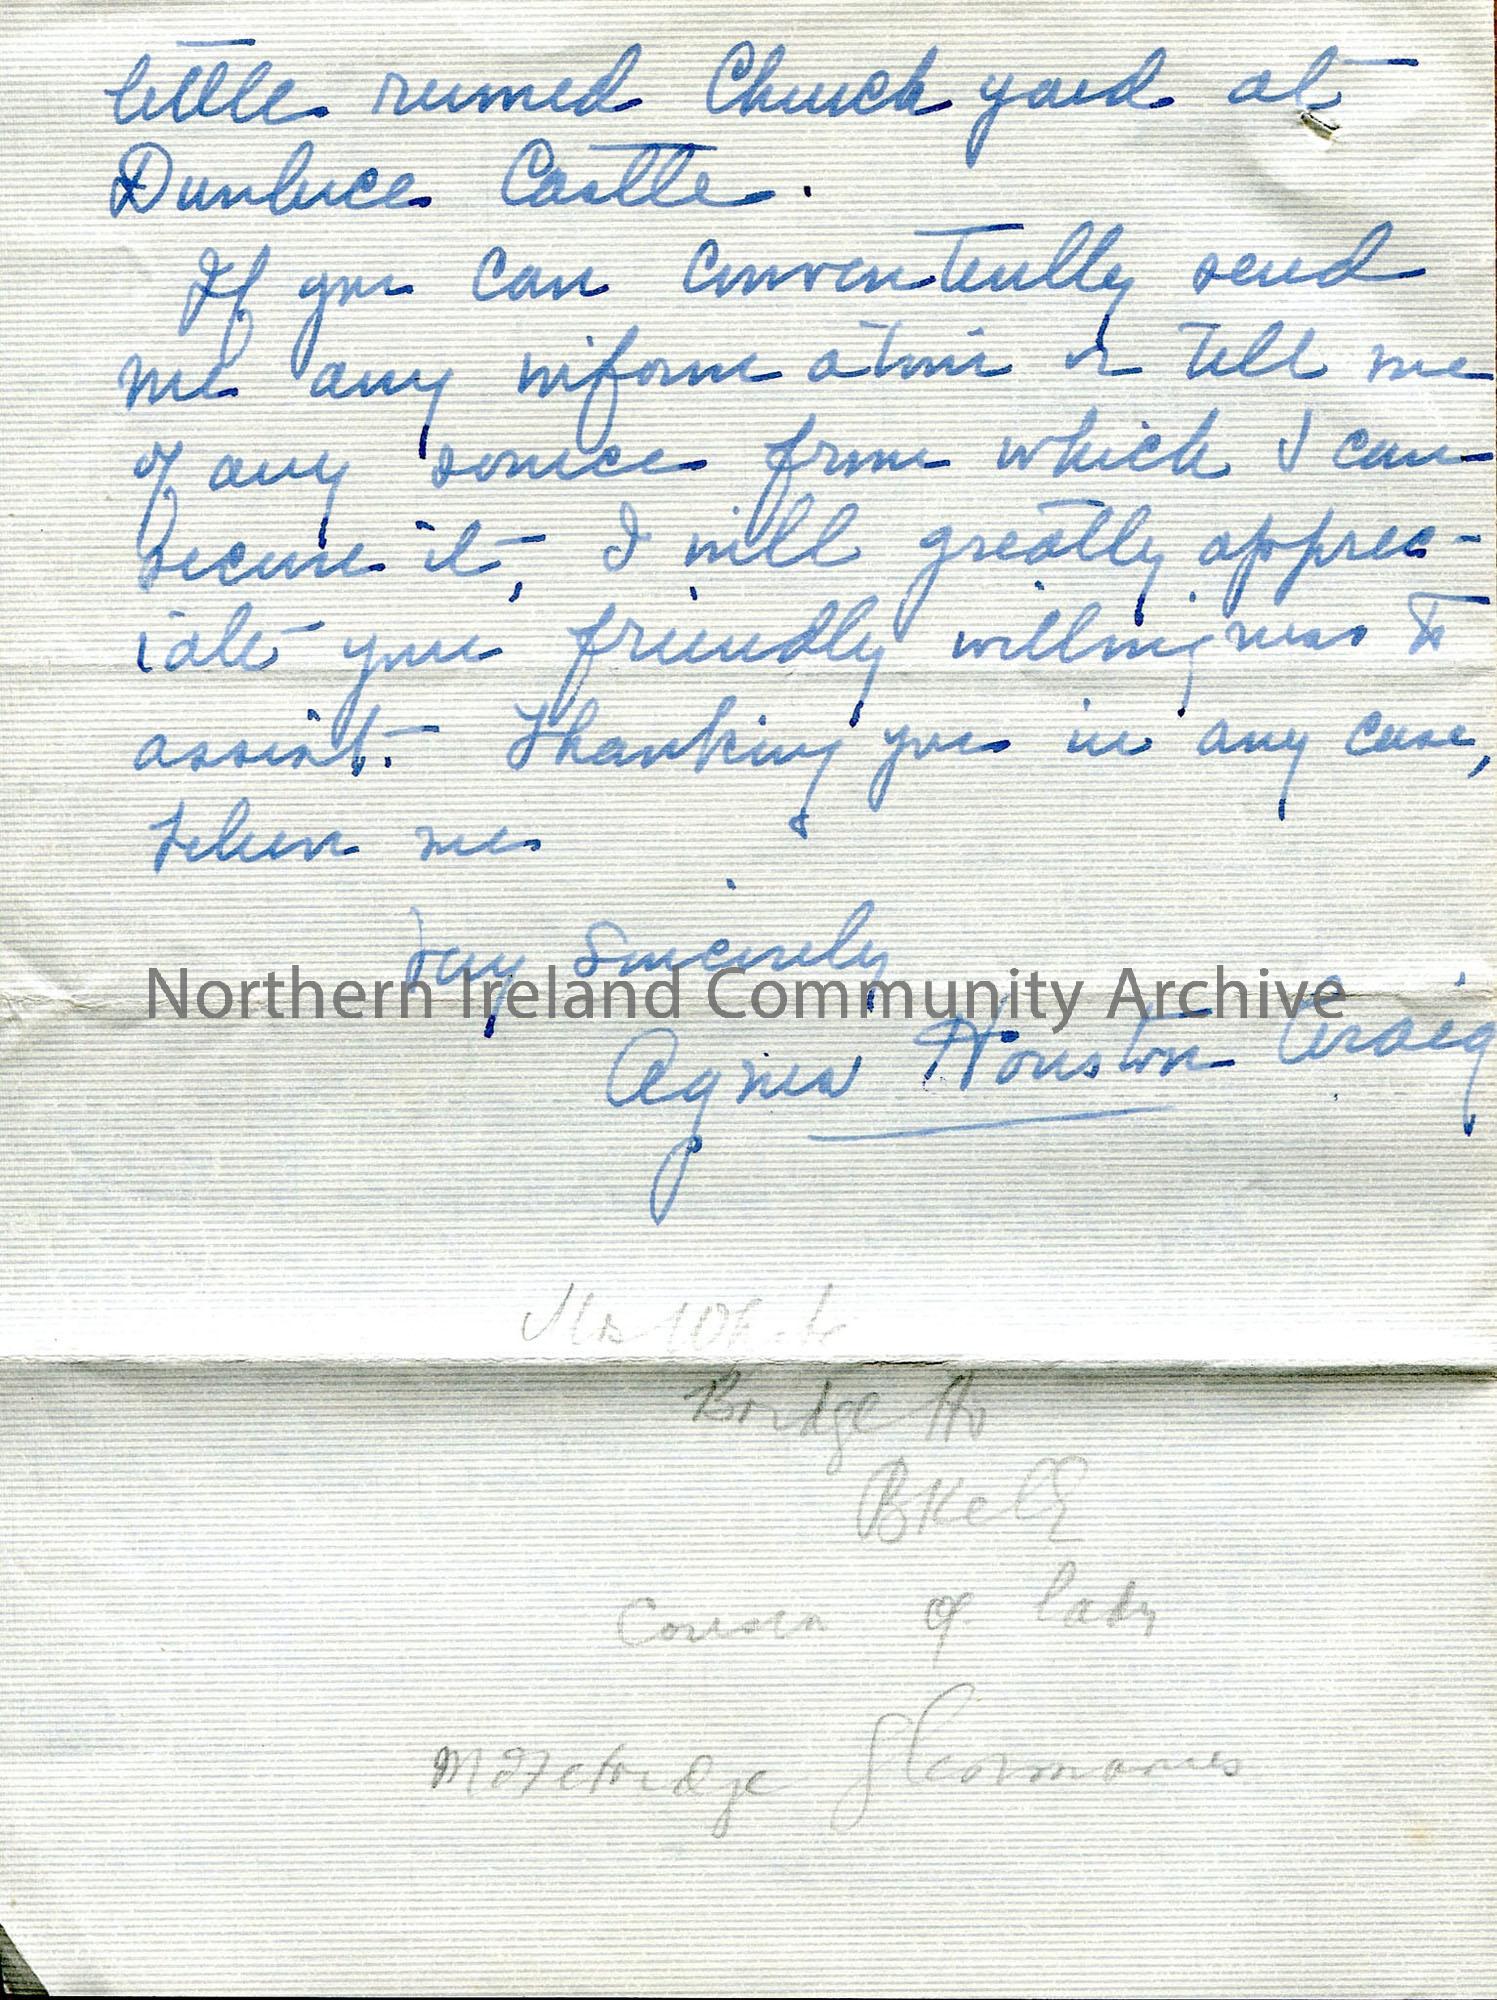 little ruined Church yard at
Dunluce Castle.
If you can conveniently send
me any information or tell me
of any source from which I can
secure it, I will greatly apprec-
iate your friendly willingness to
assist. Thanking you in any case,
believe me
Very Sincerely
Northern Ireland Community Archive
Agnes Houston Craig
Mrs White
Bridge Ho
BKelly
Cousin of lady
Glenmanus